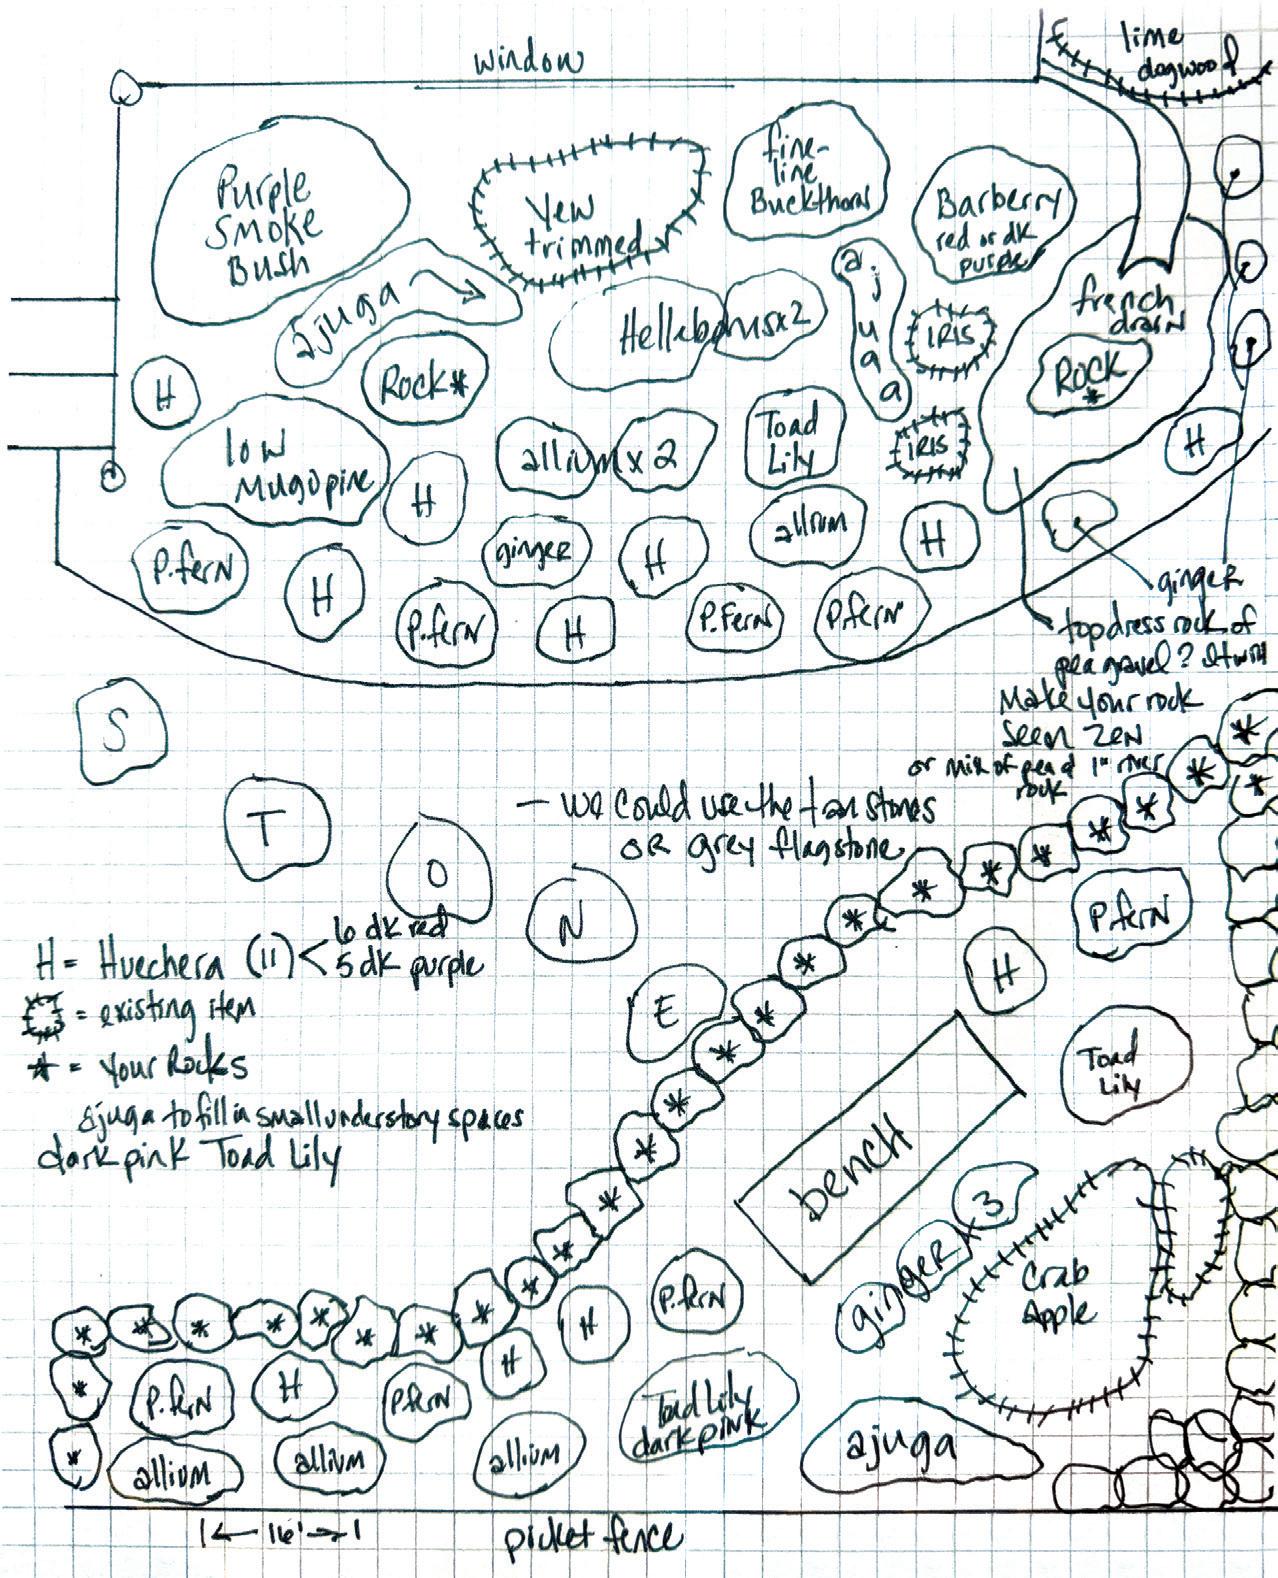 window
lime
dogwood
Purple
Smoke
Bush
Yew
trimmed
fine-
line
Buckthorn
Barberry
red or dk
purple
ajuga
Rock*
Helleborus x2
ajuga
IRIS
french
drain
ROCK
*
H
low
Mugopine
H
allium x 2
Toad
Lily
IRIS
H
P.fern
H
ginger
H
allium
H
P.fern
H
P.Fern
P.fern
ginger
topdress rock of
pea gravel? It will
Make your rock
seem zen
or mix of pea & 1" river
rock
S
T
O
N
E
- we could use the tan stones
OR grey flagstone
H = Huechera (11) < 6 dk red
5 dk purple
= existing item
* = Your Rocks
ajuga to fill in small understory spaces
dark pink Toad Lily
P.fern
H
Toad
Lily
bench
ginger x 3
Crab
Apple
P.fern
H
H
P.fern
H
P.fern
Toad Lily
dark pink
ajuga
allium
allium
allium
16'
picket fence